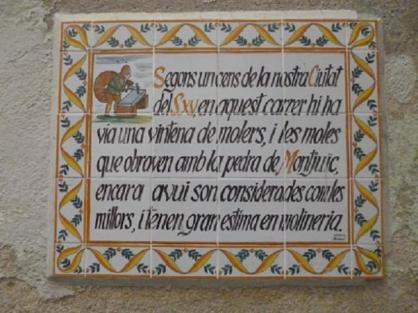 Segons un cens de la nostra Ciutat
del S.XV, en aquest carrer hi ha
via una vintena de molers, i les moles
que obroven amb la pedra de Montjuïc,
encara avui son considerades com les
millors, i tenen gran estima en molineria.